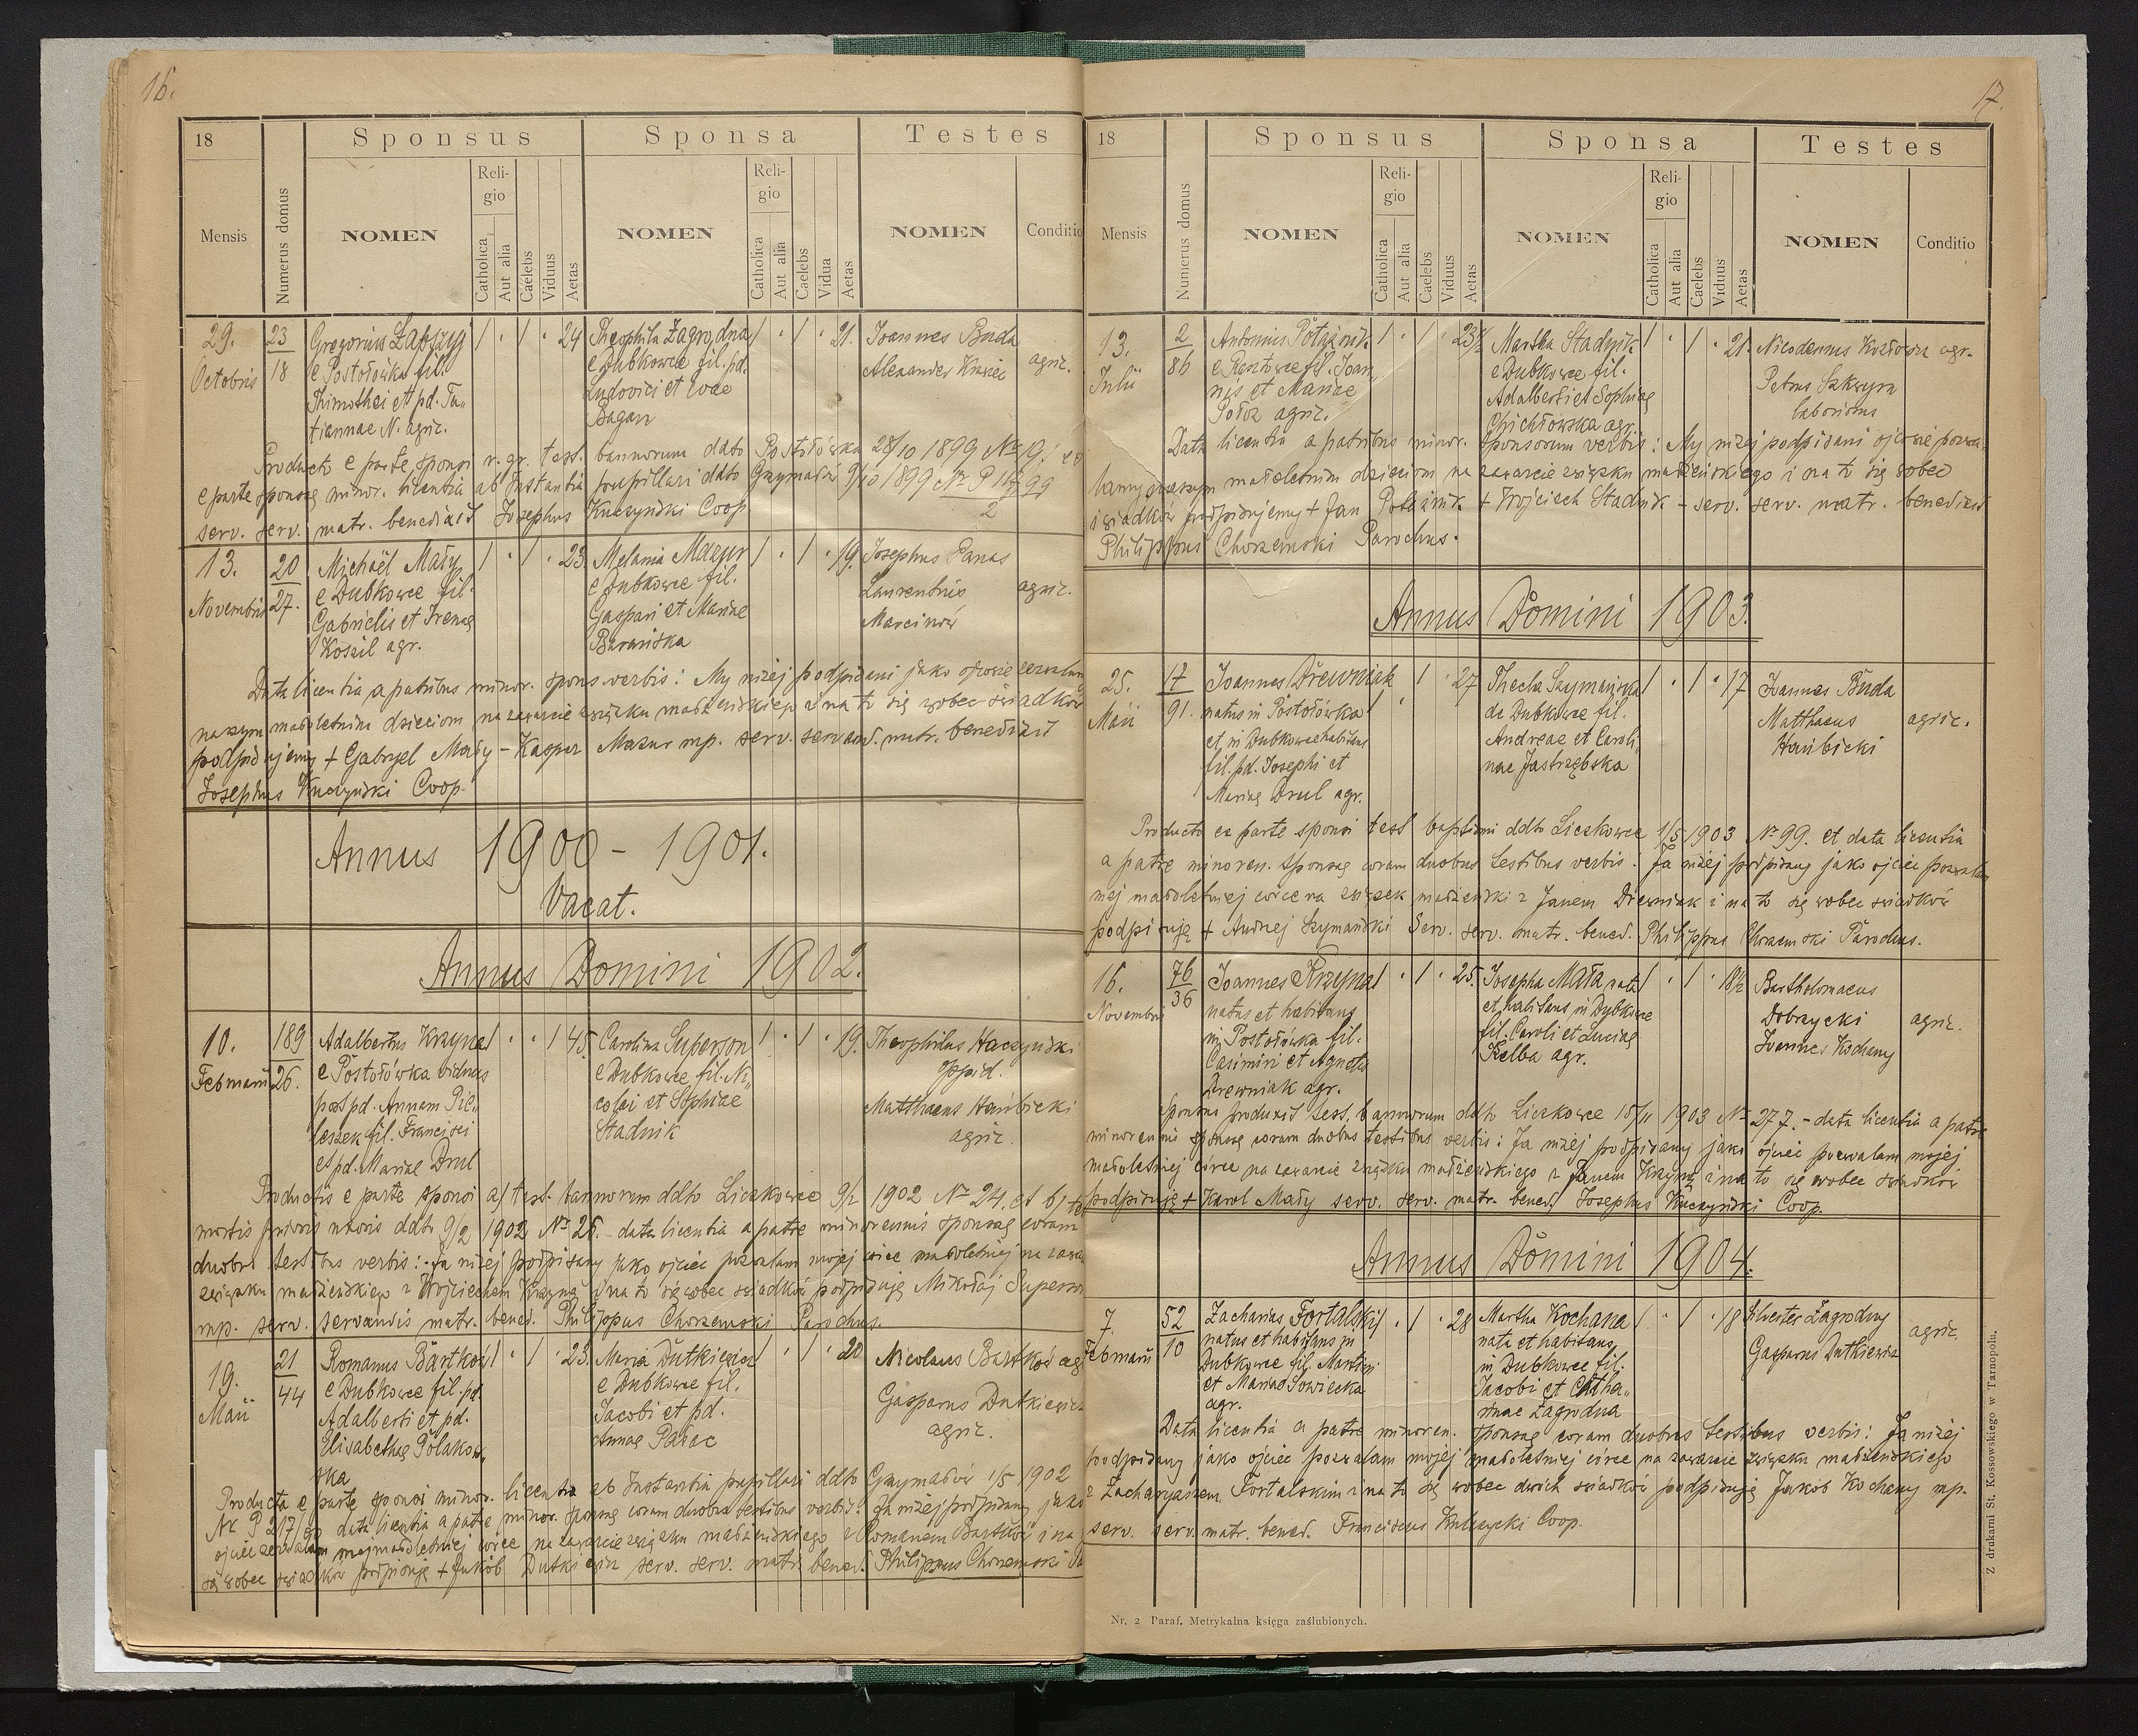 16.
18
Sponsus
Sponsa
Testes
Mensis
Numerus domus
NOMEN
Religio
Catholica
Aut alia
Caelebs
Viduus
Aetas
NOMEN
Religio
Catholica
Aut alia
Caelebs
Vidua
Aetas
NOMEN
Conditio
29. 23 Gregorius Zabżyj / . / . 24 Theophila Zagrodna / . / . 21. Joannes Buda
Octobris 18 e Postołówka fil. e Dubkowce fil. pd. Alexander agric.
Thimothei et pd. Ta- Ludovici et Evae
tiannae N. agric. Bagan
Producto e parte sponsi r. gr. test. bannorum ddto Postołówka 28/10 1899 Nr 19. et
e parte sponsae minor. licentia ab Instantia pupillari ddto Grzymałów 9/10 1899 Nr P
serv. serv. matr. benedixit Josephus Kuczyński Coop.
13. 20 Michaël Mały / . / . 23. Melania Mazur / . / . 19. Josephus Panas
Novembris 27. e Dubkowce fil. e Dubkowce fil. Laurentius agric.
Gabrielis et Irenae Gaspari et Mariae Marcinów
Koszil agr. Barańska
Data licentia a patribus minor. spons. verbis: My niżej podpisani jako ojcowie
naszym małoletnim dzieciom na zawarcie związku małżeńskiego i na to się wobec świadków
podpisujemy + Gabryel Mały - Kasper Mazur mp. serv. servand. matr. benedixit
Josephus Kuczyński Coop.
Annus 1900 - 1901.
Vacat.
Annus Domini 1902.
10. 189 Adalbertus Krzyna / . . / 45. Carolina Superson / . / . 19. Theophilus Haczyński
Februarii 26. e Postołówka viduus e Dubkowce fil. Ni- Oppid.
post pd. Annam Pie- colai et Sophiae Matthaeus Hańbicki
leszek fil. Francisci Stadnik agric.
et pd. Mariae Drul
Productis e parte sponsi a) test. bannorum ddto Liczkowce 9/2 1902 Nr 24. et b)
mortis prioris uxoris ddto 9/2 1902 Nr 26. - data licentia a patre minorennis sponsae coram
duobus testibus verbis: Ja niżej podpisany jako ojciec pozwalam mojej córce małoletniej na
związku małżeńskiego z Wojciechem Krzyną i na to się wobec świadków podpisuję Mikołaj Superson
mp. serv. servandis matr. bened. Philippus Chorzemski Parochus.
19. 21 Romanus Bartków / . / . 23. Maria Dutkiewicz / . / . 20 Nicolaus Bartków agr.
Maii 44 e Dubkowce fil. pd. e Dubkowce fil. Gasparus Dutkiewicz
Adalberti et pd. Jacobi et pd. agric.
Elisabethae Polakow- Annae Pając
ska
Producta e parte sponsi minor. licentia ab Instantia pupillari ddto Grzymałów 1/5 1902
Nr P 217/99 data licentia a patre minor. sponsae coram duobus testibus verbis: Ja niżej podpisany jako
ojciec zezwalam mojej małoletniej córce na zawarcie związku małżeńskiego z Romanem Bartków i na
się wobec świadków podpisuję + Jakób Dutkiewicz serv. serv. matr. bened. Philippus Chorzemski
17.
18
Sponsus
Sponsa
Testes
Mensis
Numerus domus
NOMEN
Religio
Catholica
Aut alia
Caelebs
Viduus
Aetas
NOMEN
Religio
Catholica
Aut alia
Caelebs
Viduus
Aetas
NOMEN
Conditio
13. 2 Antonius / . / . 23½ Martha Stadnik / . / . 21. Nicodemus agr.
Julii 86 fil. Joan- e Dubkowce fil. Petrus Szkwyra
nis et Mariae Adalberti et Sophiae laboriosus
agric. Chichłowska agr.
Data licentia a patribus minor. sponsorum verbis: My niżej podpisani ojcowie pozwa-
lamy naszym małoletnim dzieciom na zawarcie związku małżeńskiego i na to się wobec
świadków podpisujemy + Jan + Wojciech Stadnik - serv. serv. matr. benedixit
Philippus Chorzemski Parochus.
Annus Domini 1903.
25. 17 Joannes Drewniak / . / . 27 Thecla Szymańska / . / . 17 Joannes Buda
Maii 91. natus in Postołówka de Dubkowce fil. Matthaeus agric.
et in Dubkowce habitans Andreae et Caroli- Hańbicki
fil. pd. Josephi et nae Jastrzębska
Mariae Drul agr.
Producto ex parte sponsi test baptismi ddto Liczkowce 1/5 1903 Nr 99. et data licentia
a patre minoren. sponsae coram duobus testibus verbis: Ja niżej podpisany jako ojciec pozwalam
mej małoletniej córce na związek małżeński z Janem Drewniak i na to się wobec świadków
podpisuję + Andrzej Szymański Serv. serv. matr. bened. Philippus Chorzemski Parochus.
16. 76 Joannes Krzyna / . / . 25. Josepha Mała nata / . / . 18½ Bartholomaeus
Novembris 36 natus et habitans et habitans in Dubkowce Dobrzycki agric.
in Postołówka fil. fil. Caroli et Luciae Joannes Kochany
Casimiri et Agnetis Kiełba agr.
Drewniak agr.
Sponsus produxit test. bannorum ddto Liczkowce 15/11 1903 Nr 277. - data licentia a patre
minorennis sponsae coram duobus testibus verbis: Ja niżej podpisany jako ojciec pozwalam mojej
małoletniej córce na zawarcie związku małżeńskiego z Janem Krzyną i na to się wobec świadków
podpisuję + Karol Mały serv. serv. matr. bened. Josephus Kuczyński Coop.
Annus Domini 1904.
7. 52 Zacharias Fortalski / . / . 28 Martha Kochana / . / . 18 Silvester Zagrodny
Februarii 10 natus et habitans in nata et habitans Gasparus Dutkiewicz agric.
Dubkowce fil. Martini in Dubkowce fil.
et Mariae Sowiecka Jacobi et Catha-
agr. rinae Zagrodna
Data licentia a patre minoren. sponsae coram duobus testibus verbis: Ja niżej
podpisany jako ojciec pozwalam mojej małoletniej córce na zawarcie związku małżeńskiego
z Zacharyaszem Fortalskim i na to się wobec dwóch świadków podpisuję Jakób Kochany mp.
serv. serv. matr. bened. Franciscus Kulczycki Coop.
Nr. 2 Paraf. Metrykalna księga zaślubionych.
Z drukarni St. Kossowskiego w Tarnopolu.